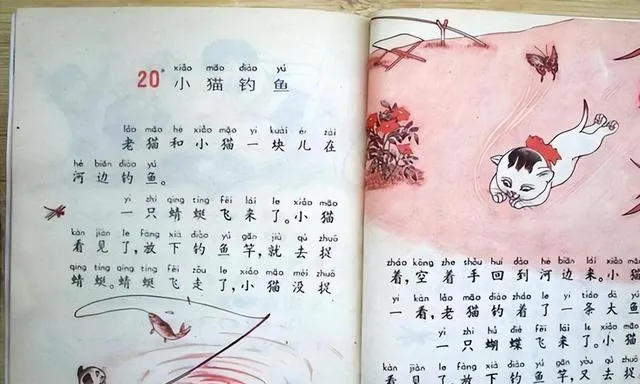 xiǎo māo diào yú
20 小猫钓鱼
lǎo māo hé xiǎo māo yí kuài ér zài
老猫和小猫一块儿在
hé biān diào yú
河边钓鱼。
yì zhī qīng tíng fēi lái le xiǎo māo
一只蜻蜓飞来了。小猫
kàn jiàn le fàng xià diào yú gān jiù qù zhuō
看见了,放下钓鱼竿,就去捉
qīng tíng qīng tíng fēi zǒu le xiǎo māo méi zhuō
蜻蜓。蜻蜓飞走了,小猫没捉
zháo kōng zhe shǒu huí dào hé biān lái xiǎo māo
着,空着手回到河边来。小猫
yí kàn lǎo māo diào zháo le yì tiáo dà yú
一看,老猫钓着了一条大鱼
yì zhī hú dié fēi lái le xiǎo māo
一只蝴蝶飞来了。小猫
kàn jiàn le fàng xià diào yú gān yòu qù
看见了,放下钓鱼竿,又去